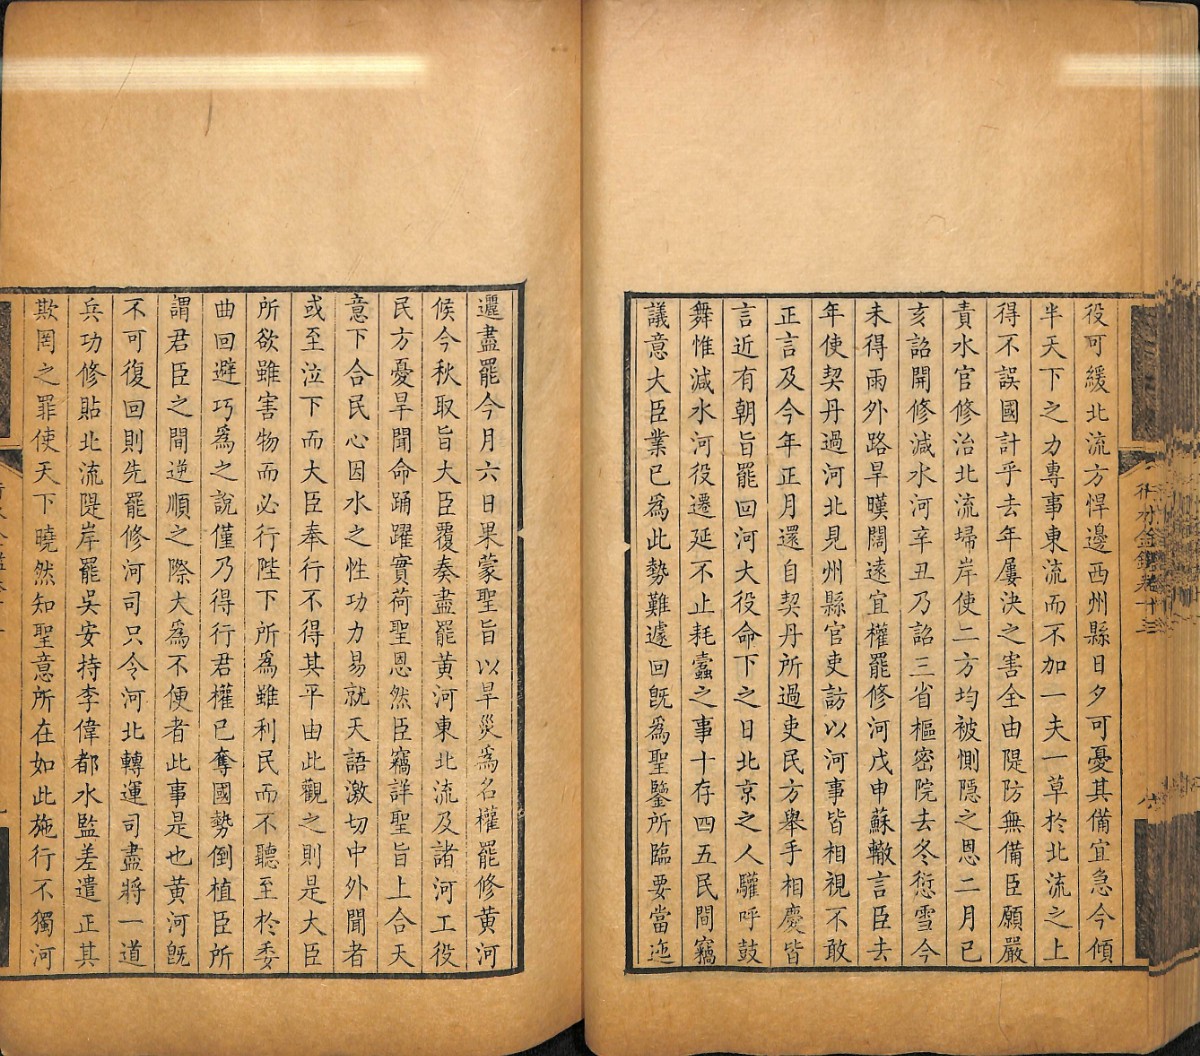 役可緩北流方悍邊西州縣日夕可憂其備宜急今傾
半天下之力專事東流而不加一夫一草於北流之上
得不誤國計乎去年屢決之害全由隄防無備臣願嚴
責水官修治北流埽岸使二方均被惻隱之恩二月己
亥詔開修減水河辛丑乃詔三省樞密院去冬愆雪今
未得雨外路旱暵闊遠宜權罷修河戊申蘇轍言臣去
年使契丹過河北見州縣官吏訪以河事皆相視不敢
正言及今年正月還自契丹所過吏民方舉手相慶皆
言近有朝旨罷回河大役命下之日北京之人驩呼鼓
舞惟減水河役遷延不止耗蠹之事十存四五民間竊
議意大臣業已為此勢難遽回旣為聖鑒所臨要當迤
邐盡罷今月六日果蒙聖旨以旱災爲名權罷修黃河
候今秋取旨大臣覆奏盡罷黃河東北流及諸河工役
民方憂旱聞命踊躍實荷聖恩然臣竊詳聖旨上合天
意下合民心因水之性功力易就天語激切中外聞者
或至泣下而大臣奉行不得其平由此觀之則是大臣
所欲雖害物而必行陛下所爲雖利民而不聽至於委
曲回避巧爲之說僅乃得行君權已奪國勢倒植臣所
謂君臣之間逆順之際大爲不便者此事是也黃河旣
不可復回則先罷修河司只令河北轉運司盡將一道
兵功修貼北流隄岸罷吳安持李偉都水監差遣正其
欺罔之罪使天下曉然知聖意所在如此施行不獨河